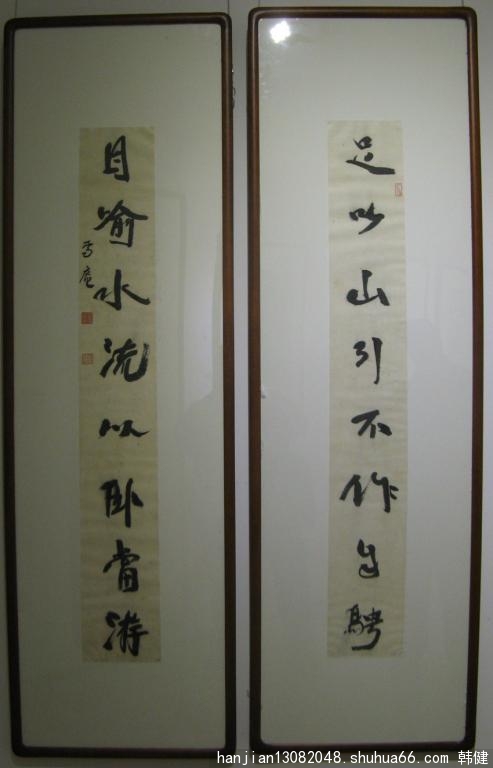 足山引不作騁
目喻水流以卧當游
雪庵
hanjian13082048.shuhua66.com 韩健